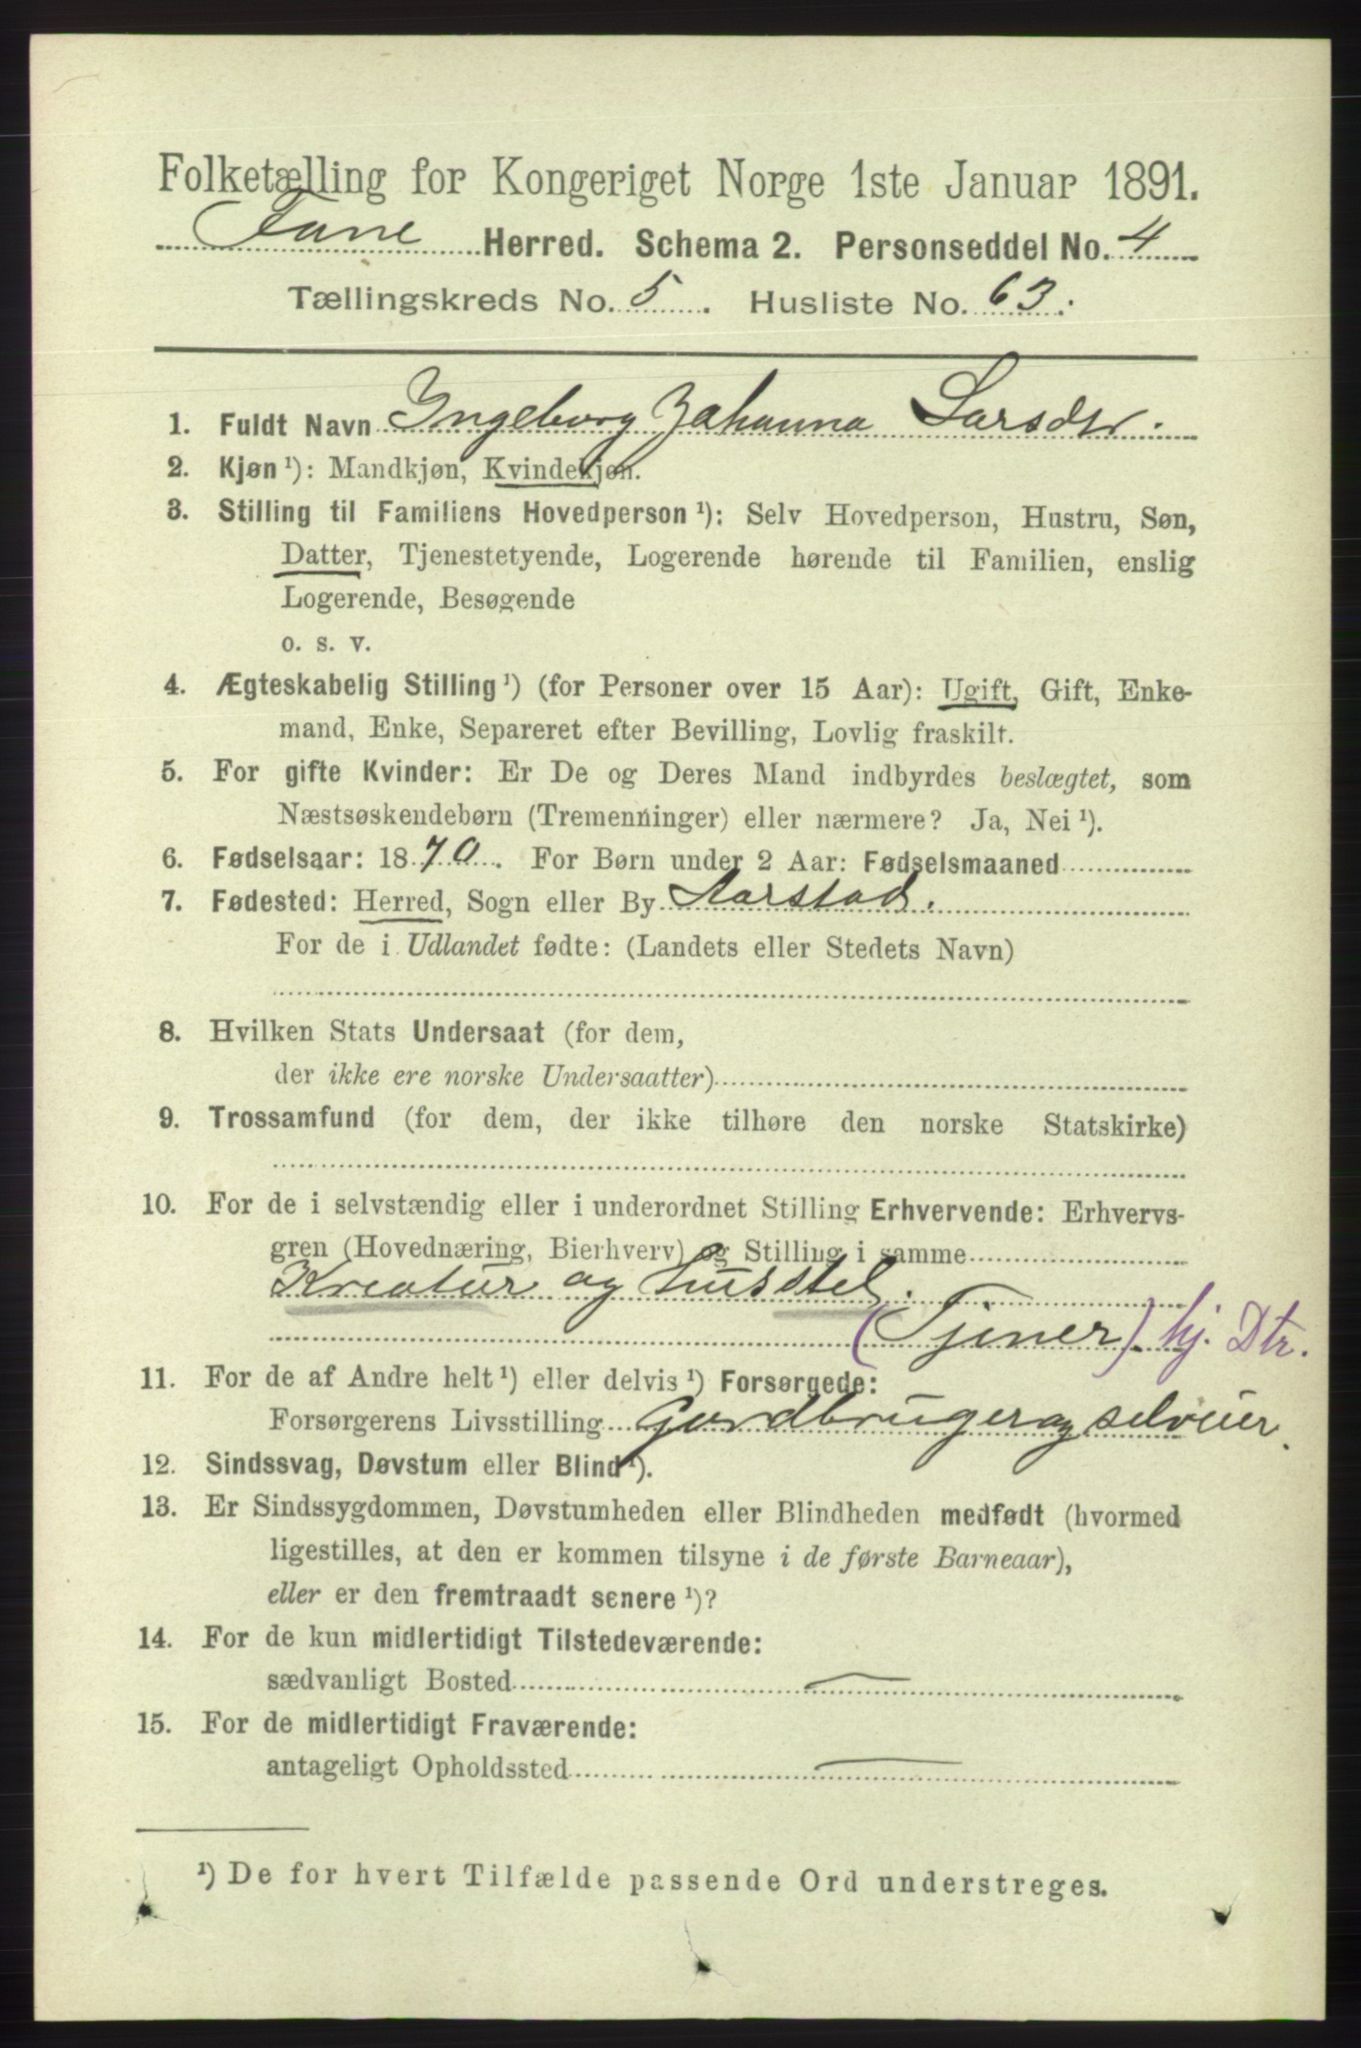 Folketælling for Kongeriget Norge 1ste Januar 1891.
Fane Herred. Schema 2. Personseddel No. 4
Tællingskreds No. 5. Husliste No. 63.
1. Fuldt Navn Ingeborg Johanna Larsdtr.
2. Kjøn ¹): Mandkjøn, Kvindekjøn.
3. Stilling til Familiens Hovedperson ¹): Selv Hovedperson, Hustru, Søn,
Datter, Tjenestetyende, Logerende hørende til Familien, enslig
Logerende, Besøgende
o. s. v.
4. Ægteskabelig Stilling ¹) (for Personer over 15 Aar): Ugift, Gift, Enke-
mand, Enke, Separeret efter Bevilling, Lovlig fraskilt.
5. For gifte Kvinder: Er De og Deres Mand indbyrdes beslægtet, som
Næstsøskendebørn (Tremenninger) eller nærmere? Ja, Nei ¹).
6. Fødselsaar: 1870. For Børn under 2 Aar: Fødselsmaaned
7. Fødested: Herred, Sogn eller By Aarstad.
For de i Udlandet fødte: (Landets eller Stedets Navn)
8. Hvilken Stats Undersaat (for dem,
der ikke ere norske Undersaatter)
9. Trossamfund (for dem, der ikke tilhøre den norske Statskirke)
10. For de i selvstændig eller i underordnet Stilling Erhvervende: Erhvervs-
gren (Hovednæring, Bierhverv) og Stilling i samme
Kreatur og husstel.
(Tjener) hj. Dtr.
11. For de af Andre helt ¹) eller delvis ¹) Forsørgede:
Forsørgerens Livsstilling Gardbruger og selveier.
12. Sindssvag, Døvstum eller Blind ¹).
13. Er Sindssygdommen, Døvstumheden eller Blindheden medfødt (hvormed
ligestilles, at den er kommen tilsyne i de første Barneaar),
eller er den fremtraadt senere ¹)?
14. For de kun midlertidigt Tilstedeværende:
sædvanligt Bosted
15. For de midlertidigt Fraværende:
antageligt Opholdssted
¹) De for hvert Tilfælde passende Ord understreges.